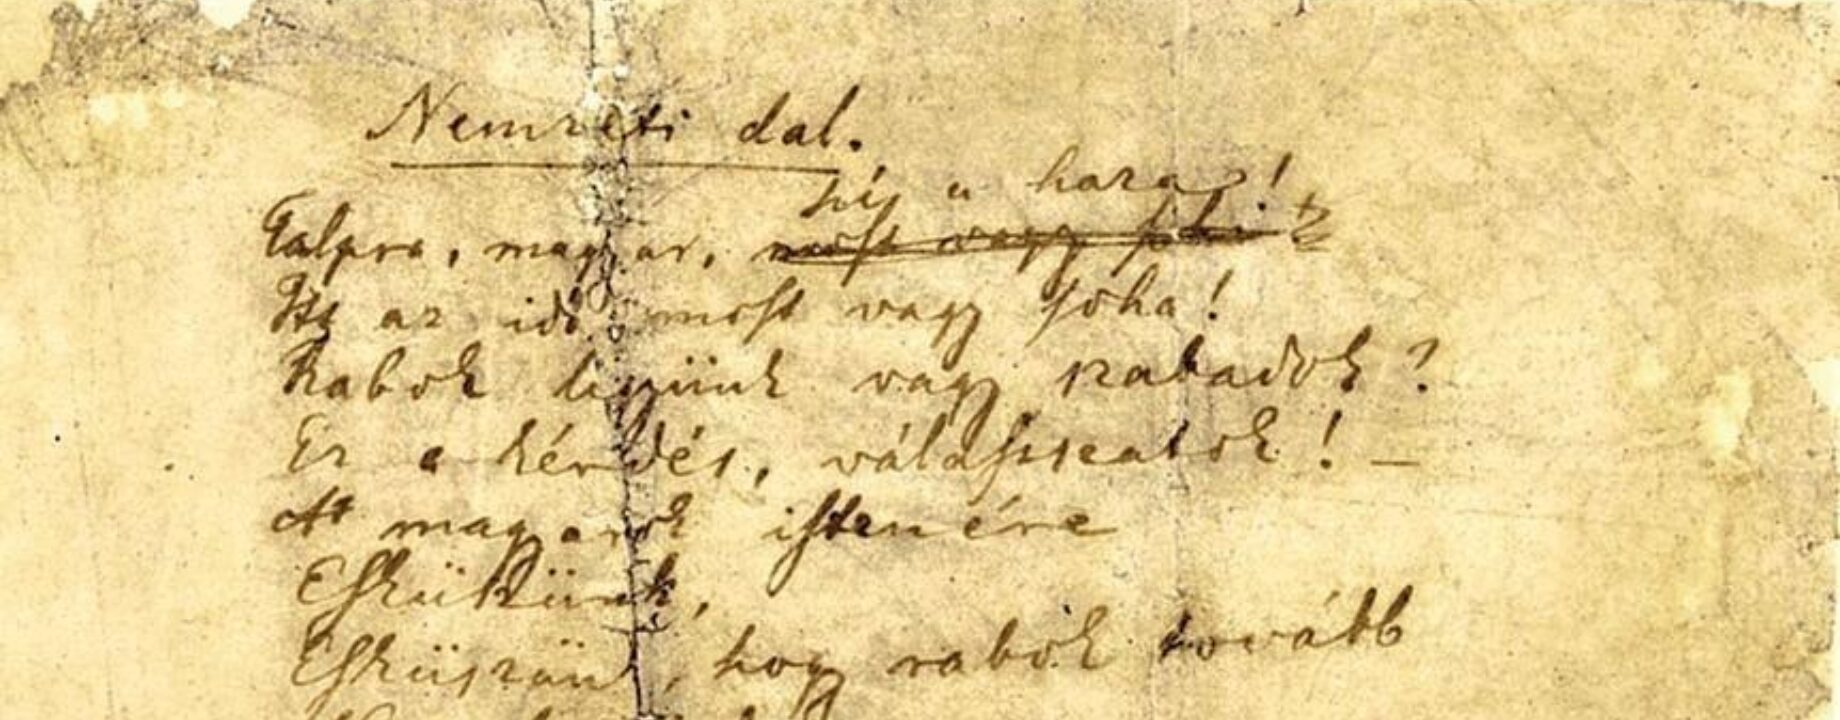 Nemzeti dal.
hí a haza!
Talpra, magyar, most vagy soha
Itt az idő, most vagy soha!
Rabok legyünk vagy szabadok?
Ez a kérdés, válasszatok! –
A magyarok istenére
Esküszünk,
Esküszünk, hogy rabok tovább